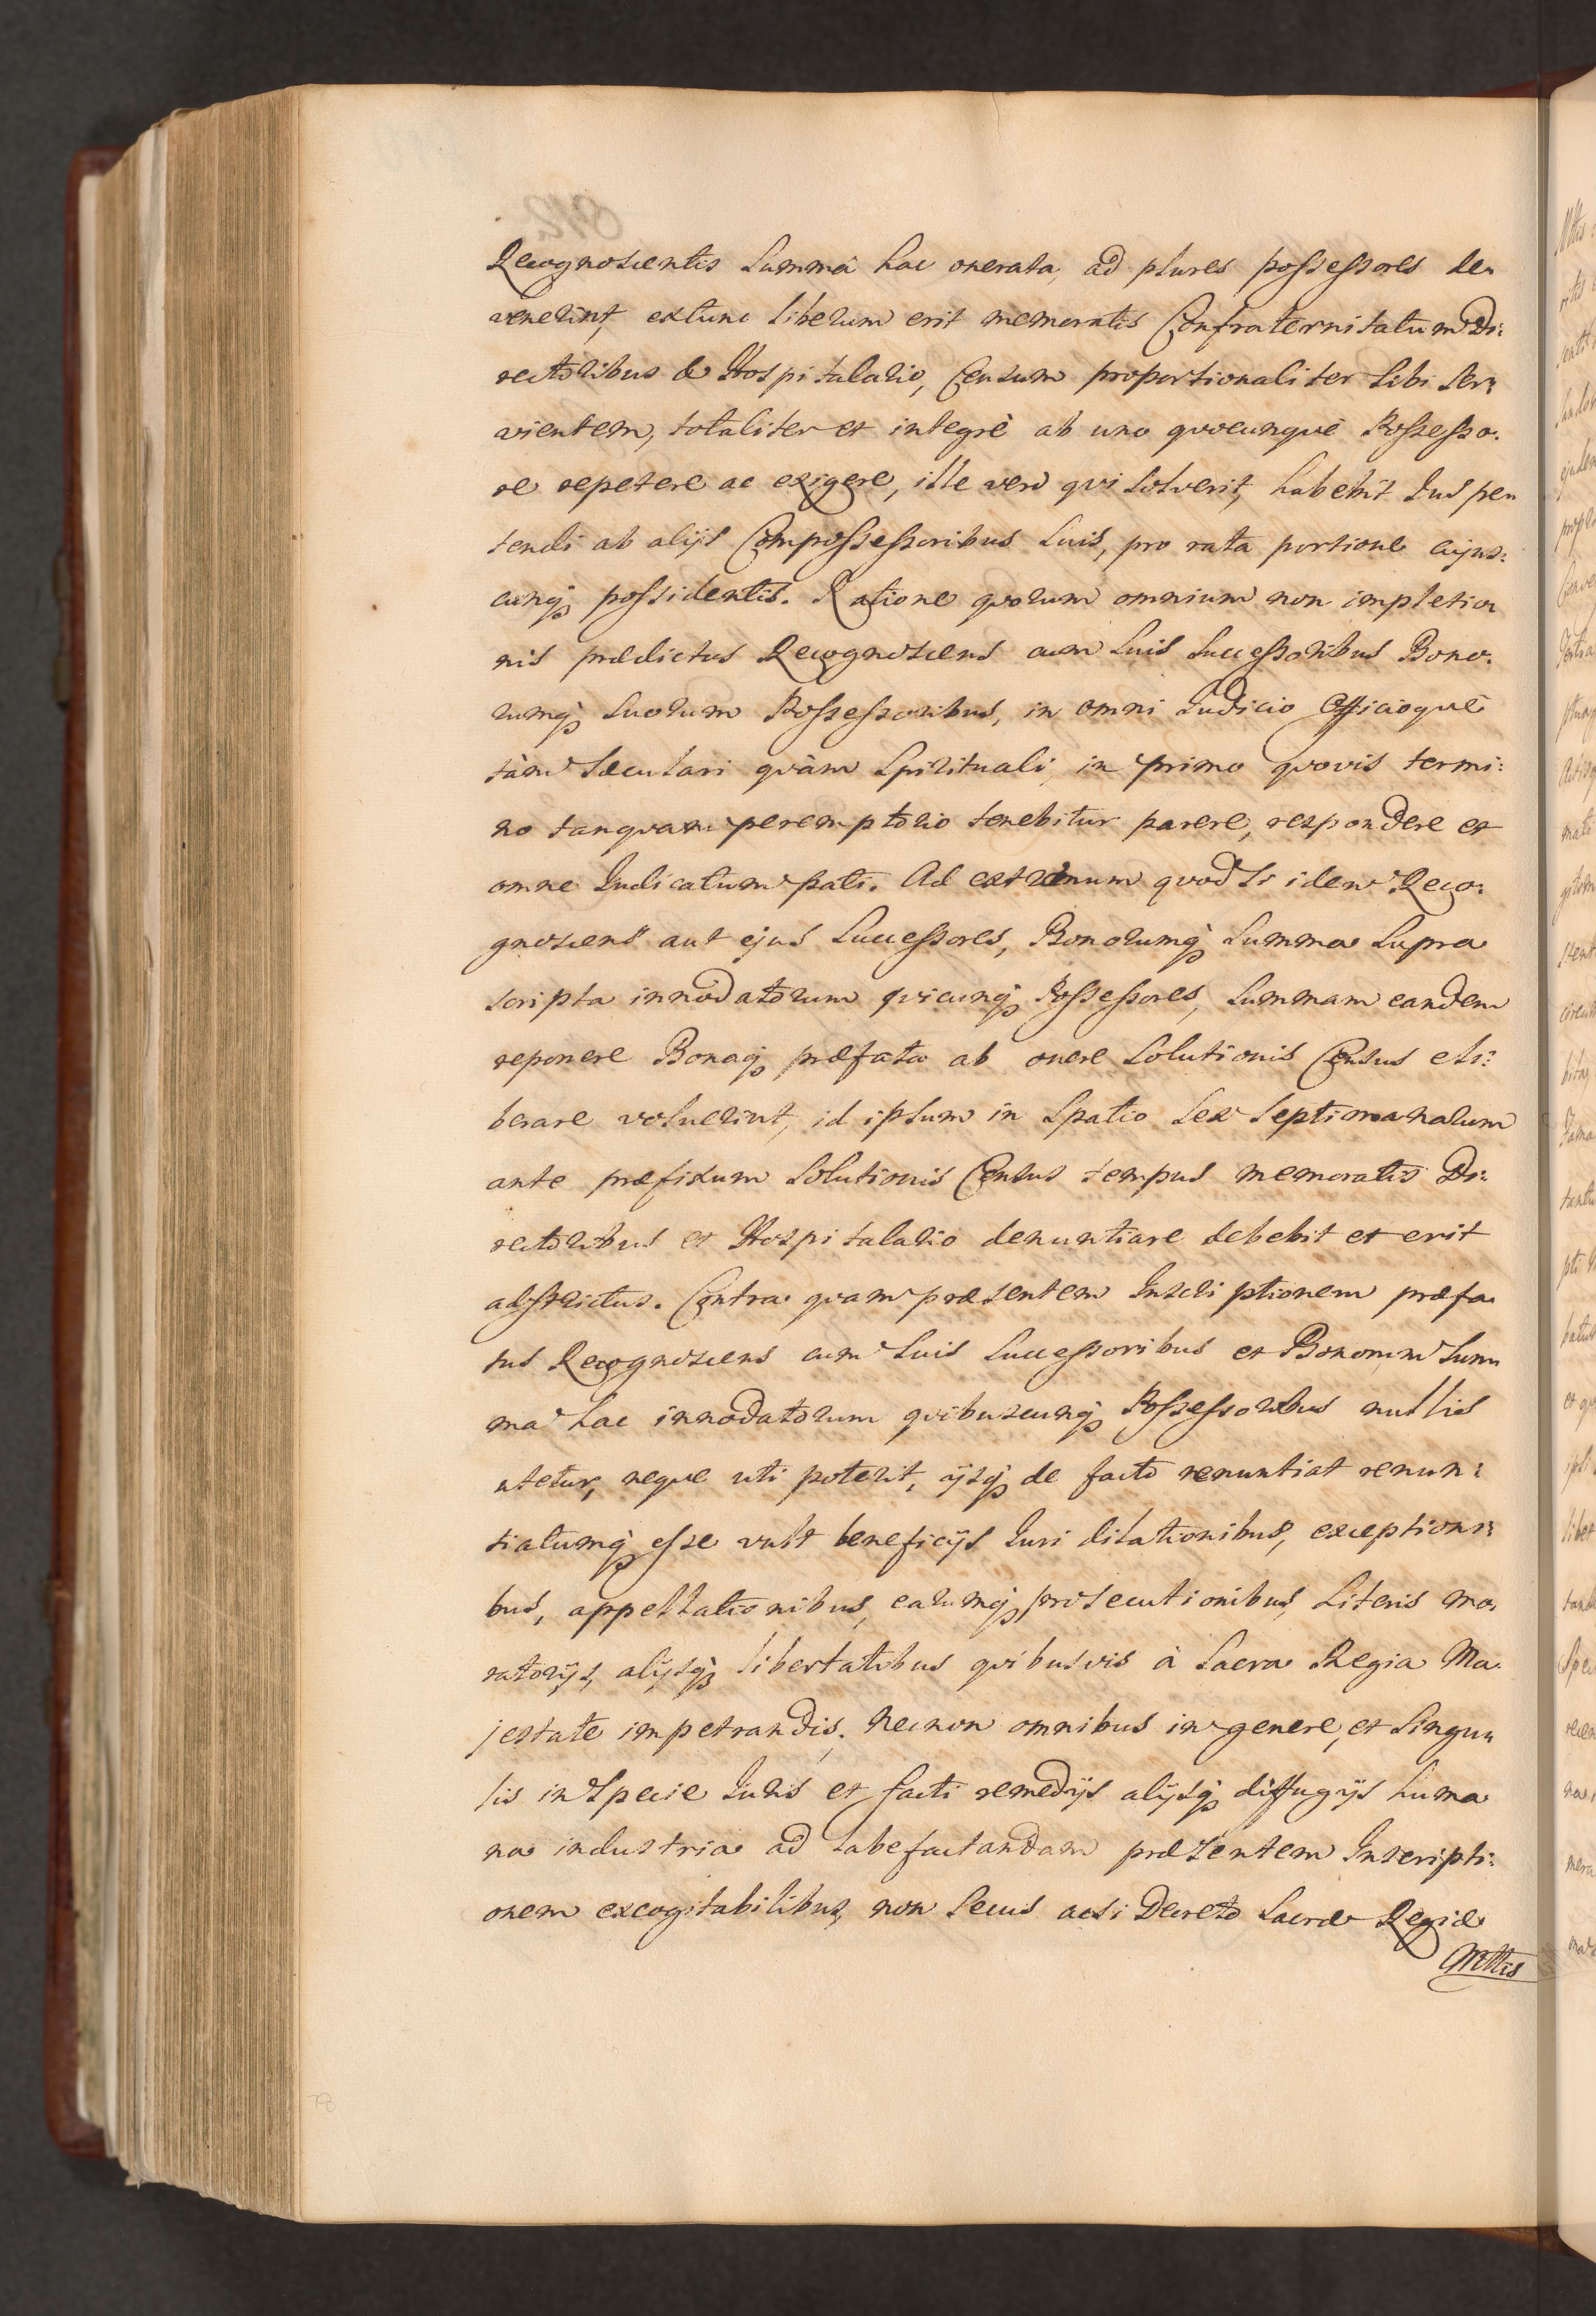 Recognoscentis summâ hac onerata, ad plures possessores de„
venerint, extunc liberum erit memoratis Confraternitatum Di:
rectoribus & Hospitalario, Censum proportionaliter sibi ser:
vientem, totaliter et integrè ab uno quocunquè Possesso.
re repetere ac exigere, ille verò qui solverit, habebit Jus pe„
tendi ab alijs Compossessoribus suis, pro rata portione cujus:
cunq; possidentis. Ratione quorum omnium non impletio„
nis prædictus Recognoscens cum suis successoribus Bono.
rumq; suorum Possessoribus, in omni Judicio Officioquè
tàm sæculari quàm Spirituali, in primo quovis termi:
no tanquam peremptorio tenebitur parere, respondere et
omne Judicatum pati. Ad extremum quod si idem Reco:
gnoscens aut ejus Successores, Bonorumq; summa supra
scripta innodatorum quicunq; Possessores, summam eandem
reponere Bonaq; præfata ab onere solutionis Census eli:
berare voluerint, id ipsum in spatio sex septimanarum
ante præfixum solutionis Census tempus memoratis Di:
rectoribus et Hospitalario denuntiare debebit et erit
adstrictus. Contra quam præsentem Inscriptionem præfa„
tus Recognoscens cum suis successoribus et Bonorum sum„
ma hac innodatorum quibuscunq; Possessoribus nullis
utetur, neque uti poterit, ijsq; de facto renuntiat renun:
tiatumq; esse vult beneficijs Juri dilationibus, exceptioni:
bus, appellationibus, earumq; prosecutionibus, Literis mo.
ratorijs, alijsq; libertatibus quibusvis à Sacra Regia Ma.
jestate impetrandis, necnon omnibus in genere, et singu„
lis in specie Juris et facti remedijs alijsq; diffugijs huma
na industria ad labefactandam præsentem Inscripti:
onem excogitabilibus, non secus acsi Decreto Sacræ Regiæ
Mttis